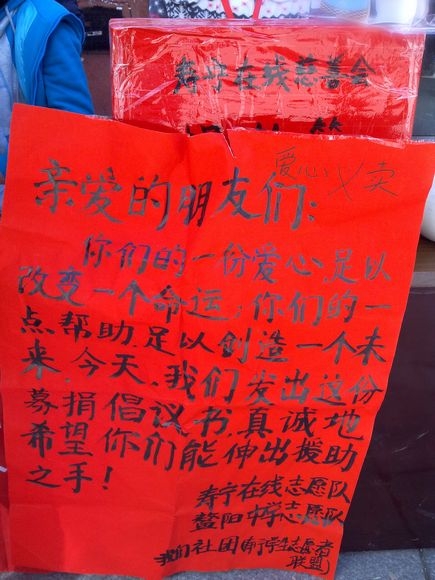 寿宁在线慈善会
爱心义卖
亲爱的朋友们：
你们的一份爱心足以
改变一个命运，你们的一
点帮助足以创造一个未
来，今天，我们发出这份
募捐倡议书，真诚地
希望你们能伸出援助
之手！
寿宁在线志愿队
鳌阳中学志愿队
我们社团
志愿者
联盟